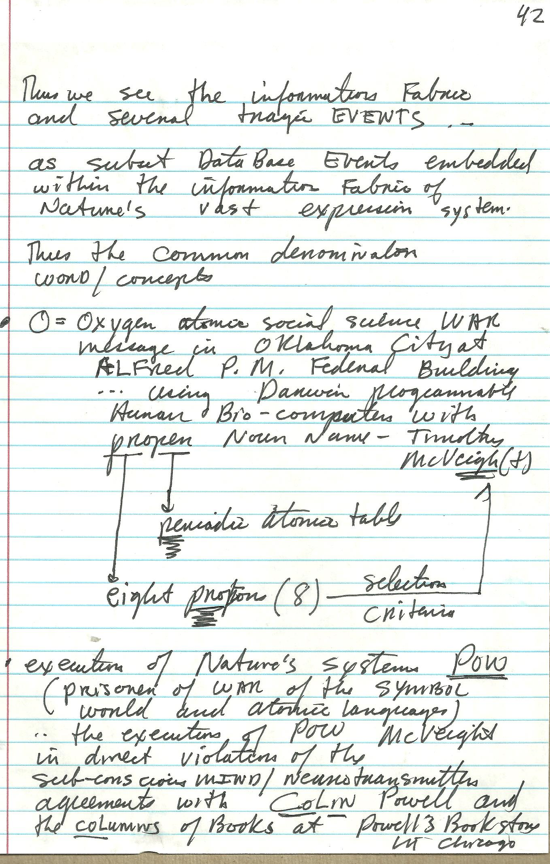 42
Thus we see the information Fabric
and several tragic EVENTS ...
as subset DataBase Events embedded
within the information Fabric of
Nature's vast expression system.
Thus the common denominator
word/concepts
• O = Oxygen atomic social science WAR
message in Oklahoma City at
ALFred P. M. Federal Building
... using Darwin programmable
Human Bio-computers with
proper Noun Name - Timothy
McVeigh(t)
periodic atomic table
eight protons (8) selection
criteria
• execution of Nature's systems POW
(prisoner of WAR of the SYMBOL
world and atomic languages)
.. the execution of POW McVeight
in direct violation of the
sub-conscious MIND/neurotransmitter
agreements with COLIN Powell and
the columns of Books at Powell's Bookstore
in Chicago